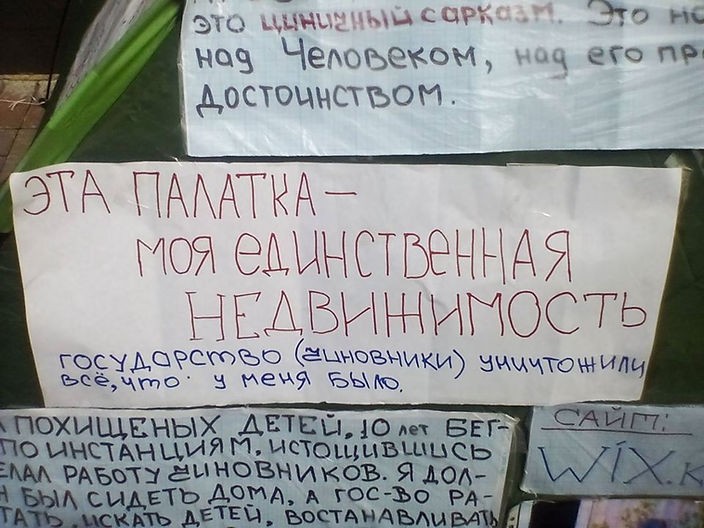 это циничный сарказм. Это
над Человеком, над его
достоинством.
ЭТА ПАЛАТКА –
МОЯ ЕДИНСТВЕННАЯ
НЕДВИЖИМОСТЬ
ГОСУДАРСТВО (чиновники) уничтожили
всё, что у меня было.
ПОХИЩЕНЫХ ДЕТЕЙ, 10 лет БЕГ-
ПО ИНСТАНЦИЯМ, ИСТОЩИВШИСЬ
ЕЛАЛ РАБОТУ чИНОВНИКОВ. Я ДОЛ-
Н БЫЛ СИДЕТЬ ДОМА, А ГОС-ВО РА-
ТАТЬ, ИСКАТЬ ДЕТЕЙ, ВОСТАНАВЛИВАТЬ
САЙТ:
WIX.K